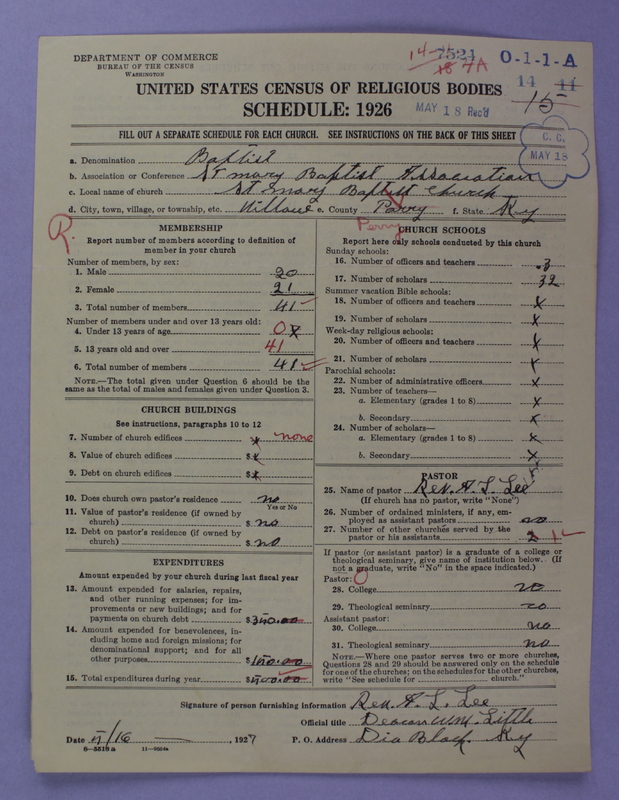 DEPARTMENT OF COMMERCE
BUREAU OF THE CENSUS
WASHINGTON
14 7524
18 7A
O-1-1-A
14 11
15
UNITED STATES CENSUS OF RELIGIOUS BODIES
SCHEDULE: 1926
MAY 18 Rec'd
FILL OUT A SEPARATE SCHEDULE FOR EACH CHURCH. SEE INSTRUCTIONS ON THE BACK OF THIS SHEET
C. C.
MAY 18
a. Denomination Baptist
b. Association or Conference St mary Baptist Association
c. Local name of church St mary Baptist church
d. City, town, village, or township, etc. e. County Parry f. State Ky
Perry
R.
MEMBERSHIP
Report number of members according to definition of
member in your church
Number of members, by sex:
1. Male 20
2. Female 21
3. Total number of members 41
Number of members under and over 13 years old:
4. Under 13 years of age 0 x
5. 13 years old and over 41
6. Total number of members 41
NOTE.—The total given under Question 6 should be the
same as the total of males and females given under Question 3.
CHURCH BUILDINGS
See instructions, paragraphs 10 to 12
7. Number of church edifices x none
8. Value of church edifices $ x
9. Debt on church edifices $ x
10. Does church own pastor's residence no
Yes or No
11. Value of pastor's residence (if owned by
church) $ no
12. Debt on pastor's residence (if owned by
church) $ no
EXPENDITURES
Amount expended by your church during last fiscal year
13. Amount expended for salaries, repairs,
and other running expenses; for im-
provements or new buildings; and for
payments on church debt $
14. Amount expended for benevolences, in-
cluding home and foreign missions; for
denominational support; and for all
other purposes $
15. Total expenditures during year $
CHURCH SCHOOLS
Report here only schools conducted by this church
Sunday schools:
16. Number of officers and teachers 3
17. Number of scholars 32
Summer vacation Bible schools:
18. Number of officers and teachers x
19. Number of scholars x
Week-day religious schools:
20. Number of officers and teachers x
21. Number of scholars x
Parochial schools:
22. Number of administrative officers x
23. Number of teachers—
a. Elementary (grades 1 to 8) x
b. Secondary x
24. Number of scholars—
a. Elementary (grades 1 to 8) x
b. Secondary x
PASTOR
25. Name of pastor Rev. A. L. Lee
(If church has no pastor, write "None")
26. Number of ordained ministers, if any, em-
ployed as assistant pastors no
27. Number of other churches served by the
pastor or his assistants 2 1
If pastor (or assistant pastor) is a graduate of a college or
theological seminary, give name of institution below. (If
not a graduate, write "No" in the space indicated.)
Pastor: 0
28. College no
29. Theological seminary no
Assistant pastor:
30. College no
31. Theological seminary no
NOTE.—Where one pastor serves two or more churches,
Questions 28 and 29 should be answered only on the schedule
for one of the churches; on the schedules for the other churches,
write "See schedule for church."
Signature of person furnishing information Rev. A. L. Lee
Official title Deacon Wm. Little
Date 5/16, 1927 P. O. Address Ky
8—5518 a 11—9524a